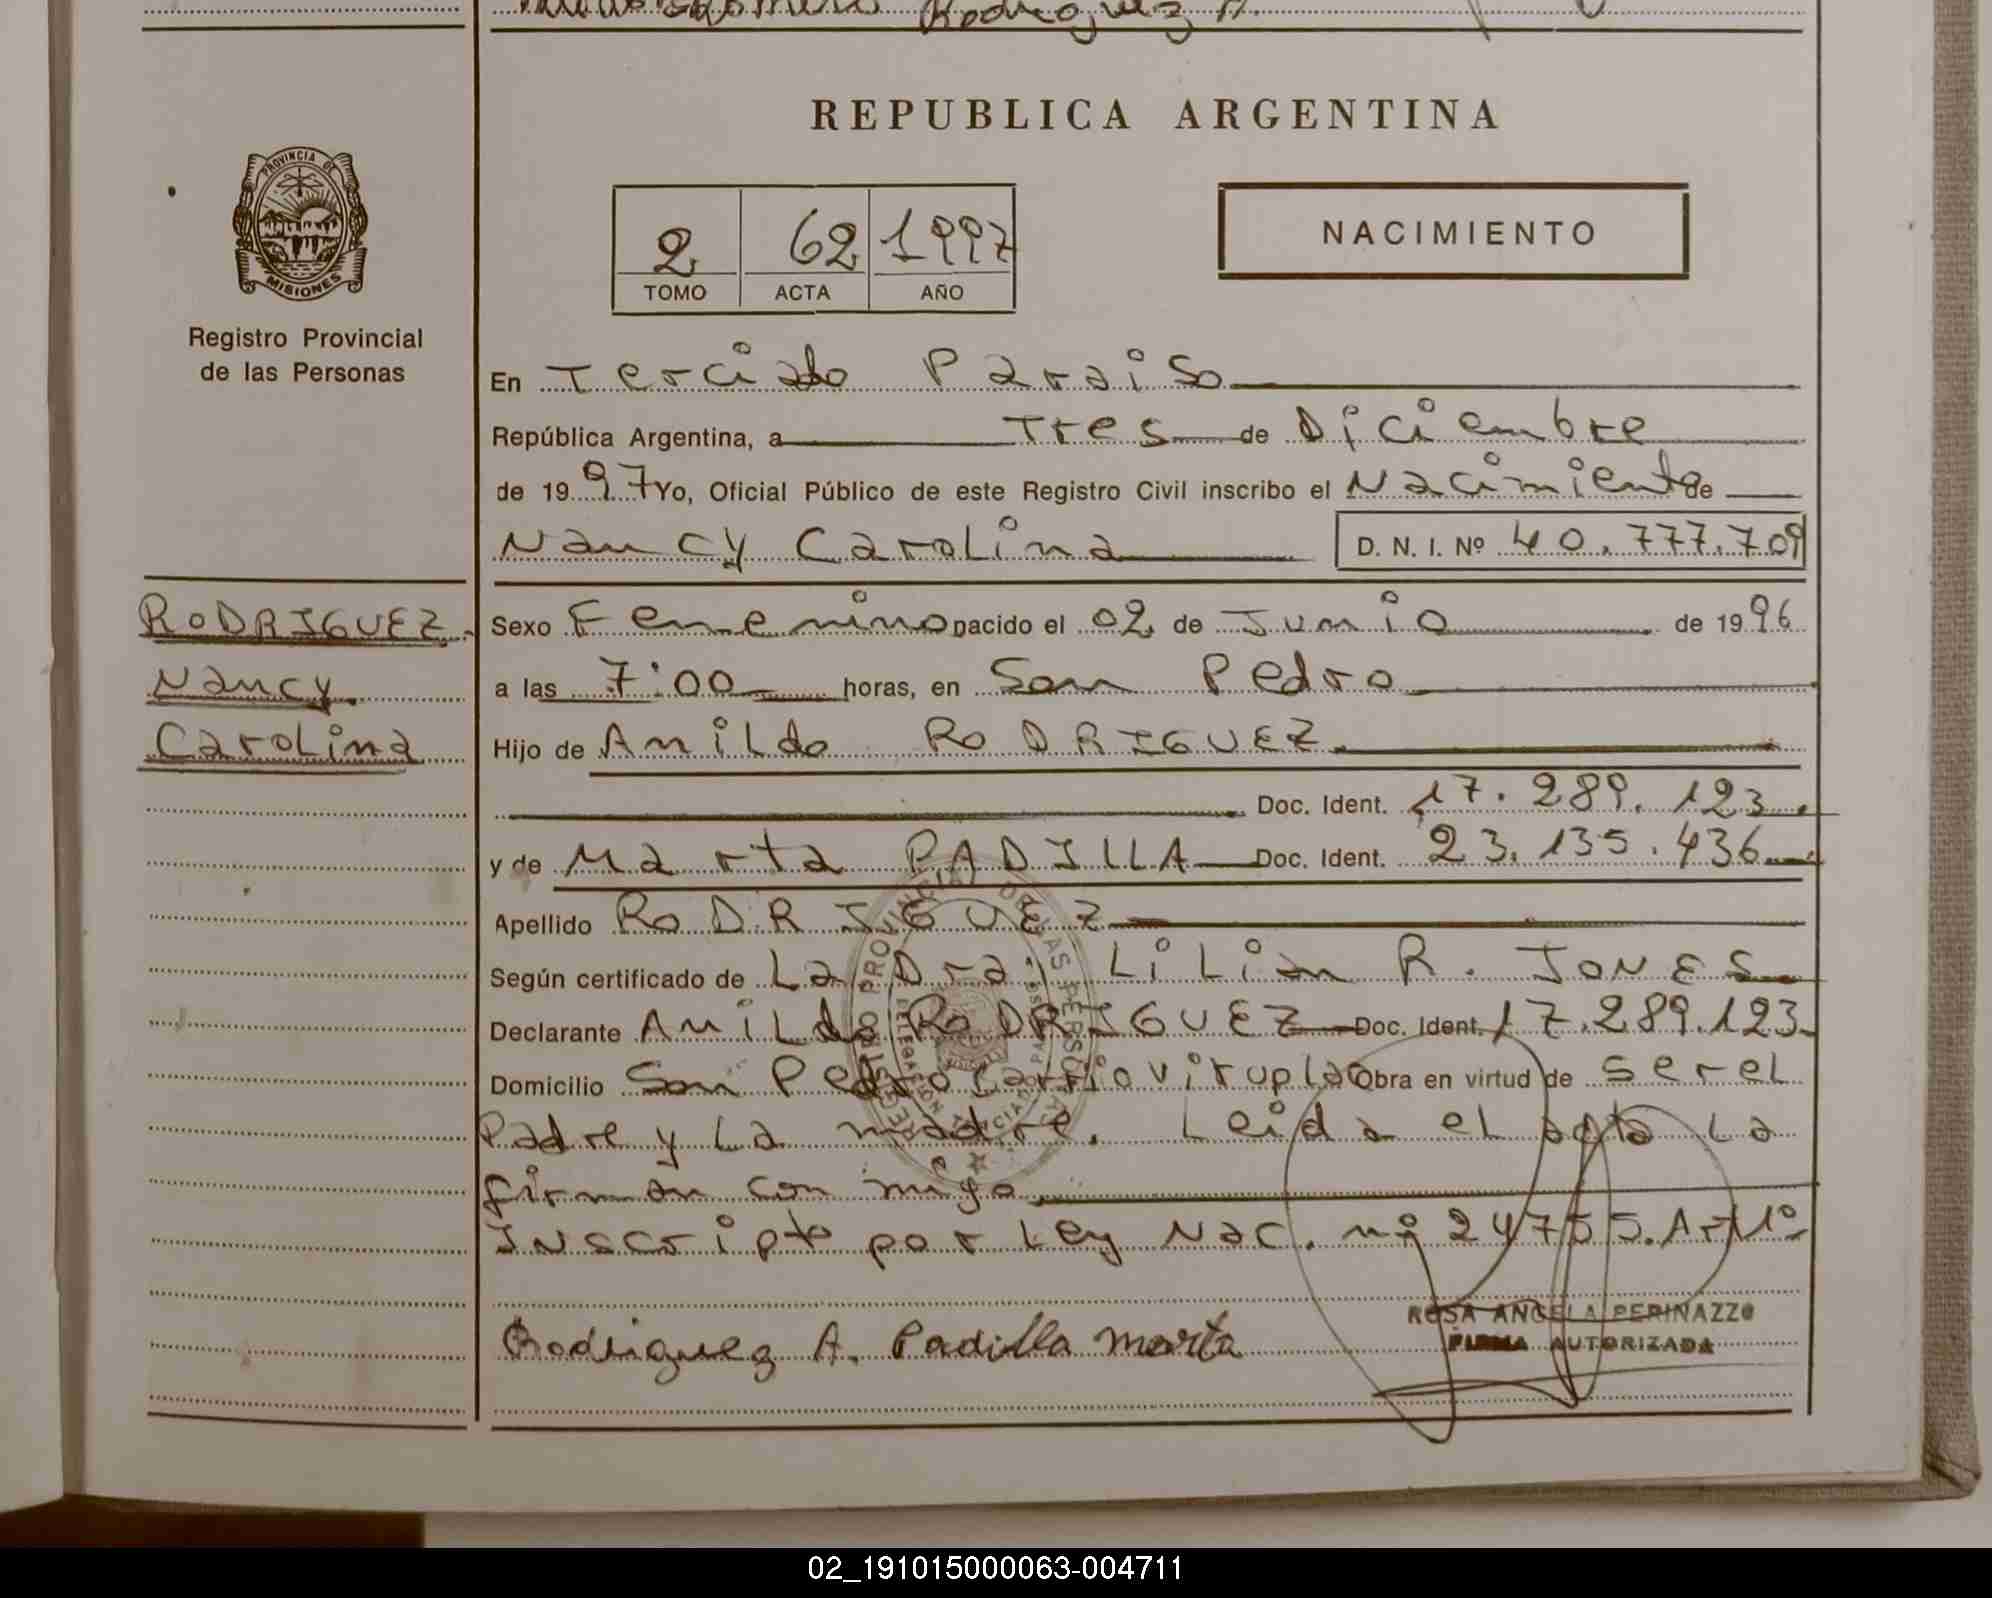 Rodriguez A.
REPUBLICA ARGENTINA
PROVINCIA DE MISIONES
Registro Provincial
de las Personas
2 62 1997
TOMO ACTA AÑO
NACIMIENTO
En Terciado Paraiso
República Argentina, a Tres de Diciembre
de 1997 Yo, Oficial Público de este Registro Civil inscribo el Nacimiento de
Nancy Carolina D. N. I. Nº 40.777.709
RODRIGUEZ
Nancy
Carolina
Sexo Femenino nacido el 02 de Junio de 1996
a las 7:00 horas, en San Pedro
Hijo de Anildo RODRIGUEZ.
Doc. Ident. 17.289.123.
y de Marta PADILLA Doc. Ident. 23.135.436
Apellido RODRIGUEZ
Según certificado de La Dra. Lilian R. JONES
Declarante Anildo RODRIGUEZ Doc. Ident. 17.289.123
Domicilio San Pedro Obra en virtud de ser el
Padre y La madre. Leida el acta La
firman con migo
Inscripto por Ley Nac. nº 24755. Art 1º
ROSA ANGELA PERINAZZO
FIRMA AUTORIZADA
Rodriguez A. Padilla Marta
02_191015000063-004711